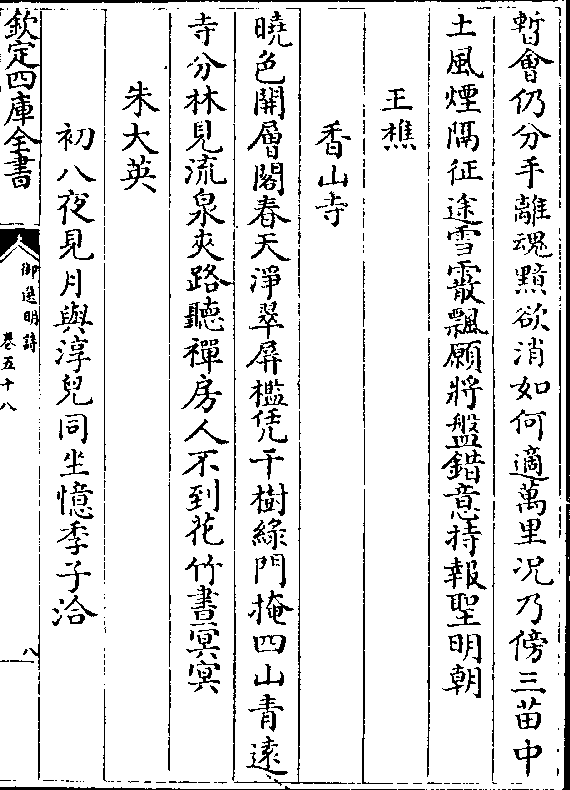 暫會仍分手離魂黯欲消如何適萬里况乃傍三苗中
土風煙隔征途雪霰飄願將盤錯意持報聖明朝
王樵
香山寺
曉色開層閣春天淨翠屏檻凭千樹綠門掩四山青遠
寺分林見流泉夾路聽禪房人不到花竹晝冥冥
朱大英
初八夜見月與淳兒同坐憶季子洽
欽定四庫全書
御選明詩
卷五十八
八